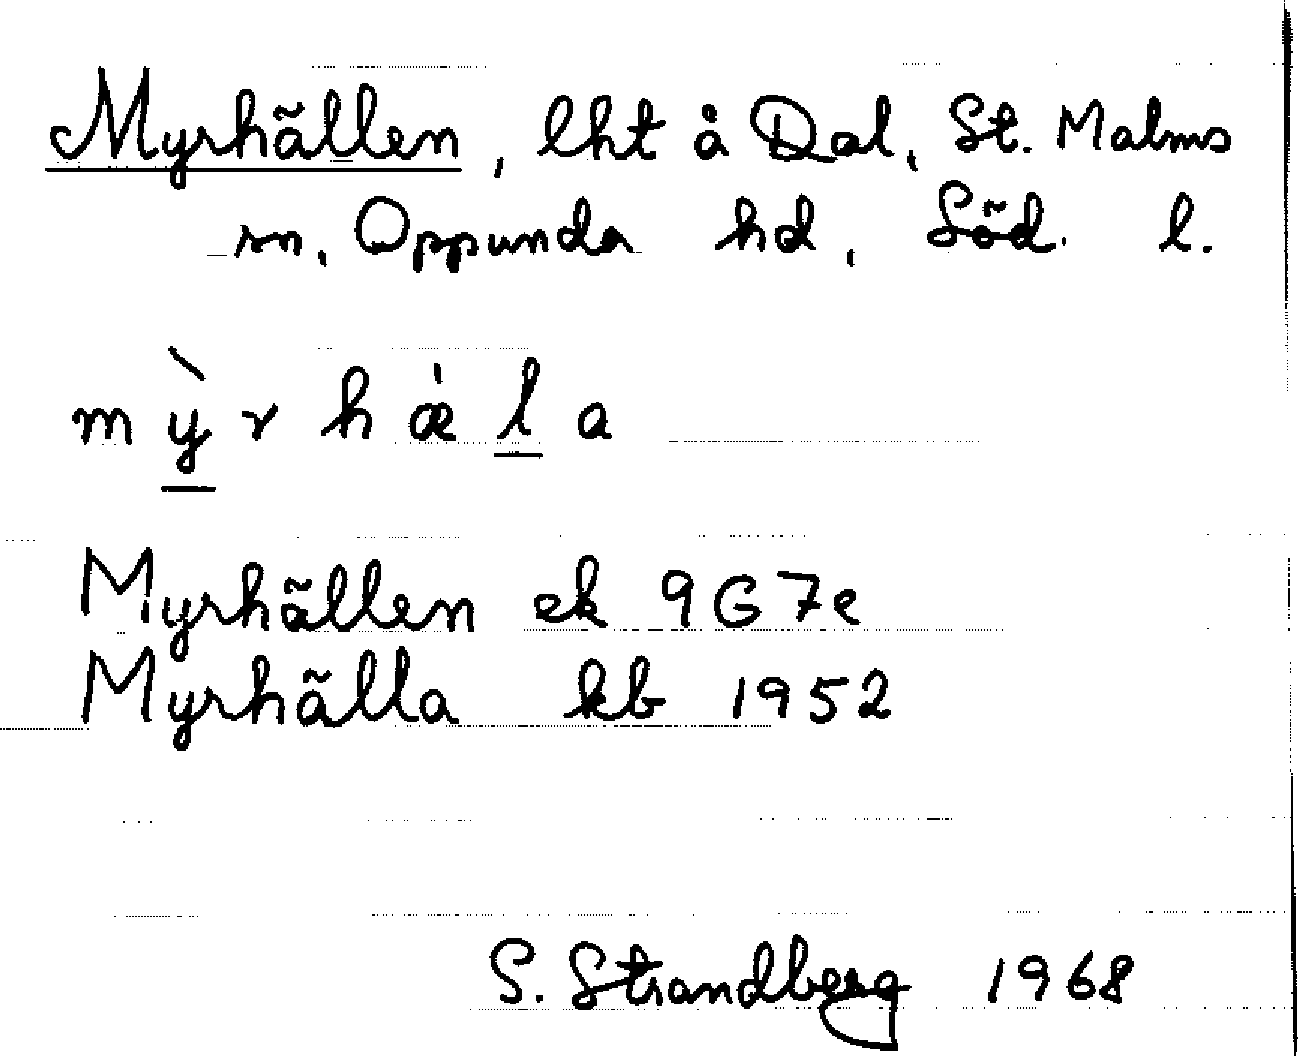 Myrhällen, lht å Dal, St. Malms
sn, Oppunda hd, Söd. l.
mỳrhæ̇la
Myrhällen ek 9G7e
Myrhälla kb 1952
S. Strandberg 1968